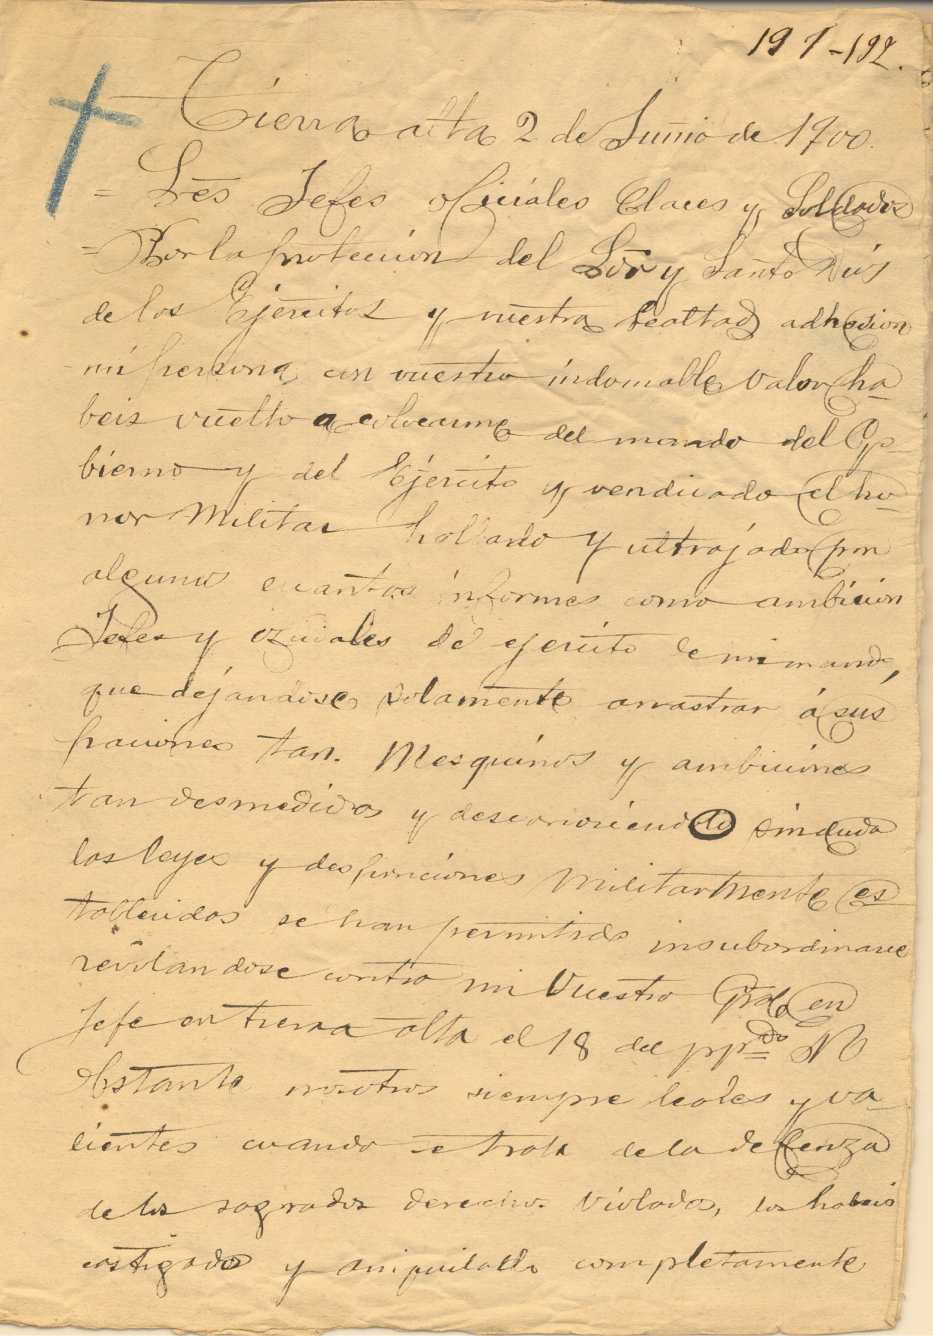 191-192.
Tierra alta 2 de Junio de 1900.
= Sres Jefes oficiales Claces y Soldados
= Por la proteccion del Sor y Santo Dios
de los Ejercitos y vuestra lealtad adhecion
mi persona, con vuestro indomable valor ha-
beis vuelto a colocarme del mando del Go-
bierno y del Ejercito y vendicado el ho-
nor Militar hollado y ultrajado por
algunos cuantos informes como ambicion
Jefes y oficiales del ejercito de mi mando,
que dejandose solamente arrastrar á sus
paciones tan Mesquinos y ambiciones
tan desmedidas y desconociendolo sin duda
las leyes y desposiciones Militarmente es-
tablecidas se han permitido insubordinarse
revelandose contra mi Vuestro Gral en
Jefe en tierra alta el 18 del ppdo No
obstante nosotros siempre leales y va-
lientes cuando se trata de la defenza
de los sagrados derechos violados, los habeis
castigado y aniquilado completamente